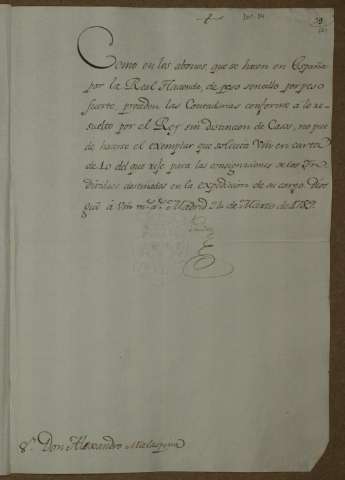 Como en los abonos, que se hacen en España
por la Real Hacienda, de peso sencillo por peso
fuerte, proceden las Contadurias conforme à lo re-
suelto por el Rey sin distincion de Casos, no pue-
de hacerse el exemplar que solicita Vm en carta
de 10 del que rije para las consignaciones de los In-
dividuos destinados en la expedicion de su cargo. Dios
gue à Vm m.s a.s Madrid 24 de Marzo de 1789.
S.r Don Alexandro Malaspina